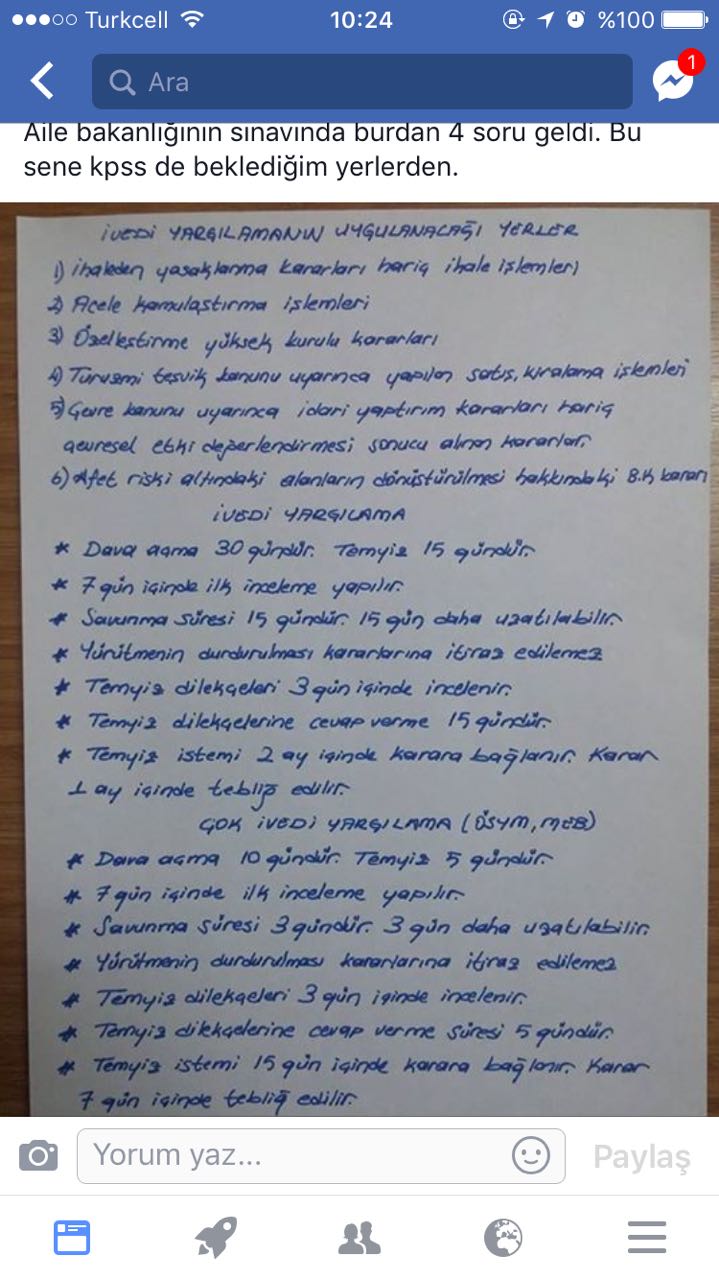 Turkcell 10:24 %100
Ara 1
Aile bakanlığının sınavında burdan 4 soru geldi. Bu
sene kpss de beklediğim yerlerden.
İVEDİ YARGILAMANIN UYGULANACAĞI YERLER
1) İhaleden yasaklanma kararları hariç ihale işlemleri
2) Acele kamulaştırma işlemleri
3) Özelleştirme yüksek kurulu kararları
4) Turizmi teşvik kanunu uyarınca yapılan satış, kiralama işlemleri
5) Çevre kanunu uyarınca idari yaptırım kararları hariç
çevresel etki değerlendirmesi sonucu alınan kararlar.
6) Afet riski altındaki alanların dönüştürülmesi hakkındaki B.K kararı
İVEDİ YARGILAMA
* Dava açma 30 gündür. Temyiz 15 gündür.
* 7 gün içinde ilk inceleme yapılır.
* Savunma süresi 15 gündür. 15 gün daha uzatılabilir.
* Yürütmenin durdurulması kararlarına itiraz edilemez
* Temyiz dilekçeleri 3 gün içinde incelenir.
* Temyiz dilekçelerine cevap verme 15 gündür.
* Temyiz istemi 2 ay içinde karara bağlanır. Karar
1 ay içinde tebliğ edilir.
ÇOK İVEDİ YARGILAMA (ÖSYM, MEB)
* Dava açma 10 gündür. Temyiz 5 gündür.
* 7 gün içinde ilk inceleme yapılır.
* Savunma süresi 3 gündür. 3 gün daha uzatılabilir.
* Yürütmenin durdurulması kararlarına itiraz edilemez
* Temyiz dilekçeleri 3 gün içinde incelenir.
* Temyiz dilekçelerine cevap verme süresi 5 gündür.
* Temyiz istemi 15 gün içinde karara bağlanır. Karar
7 gün içinde tebliğ edilir.
Yorum yaz... Paylaş